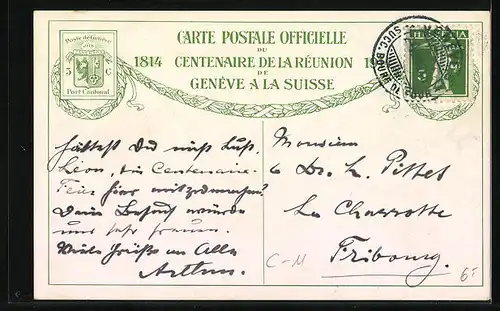 CARTE POSTALE OFFICIELLE
DU
1814 CENTENAIRE DE LA RÉUNION 19
DE
GENÈVE À LA SUISSE
Poste de Genève
5 C
Port Cantonal
HELVETIA
5
SUCC. BOURG
hättest Du nicht Lust,
Léon, die Centenaire-
Feier hier mitzumachen?
Dein Besuch würde
uns sehr freuen.
Viele Grüsse an Alle
Monsieur
Dr. L. Pittet
La Charrotte
Fribourg.
C-M
6.-